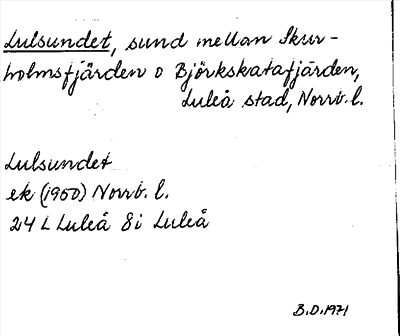 Lulsundet, sund mellan Skur-
holmsfjärden o Björkskatafjärden,
Luleå stad, Norrb. l.
Lulsundet
ek (1950) Norrb. l.
24 L Luleå 8i Luleå
B.D. 1971